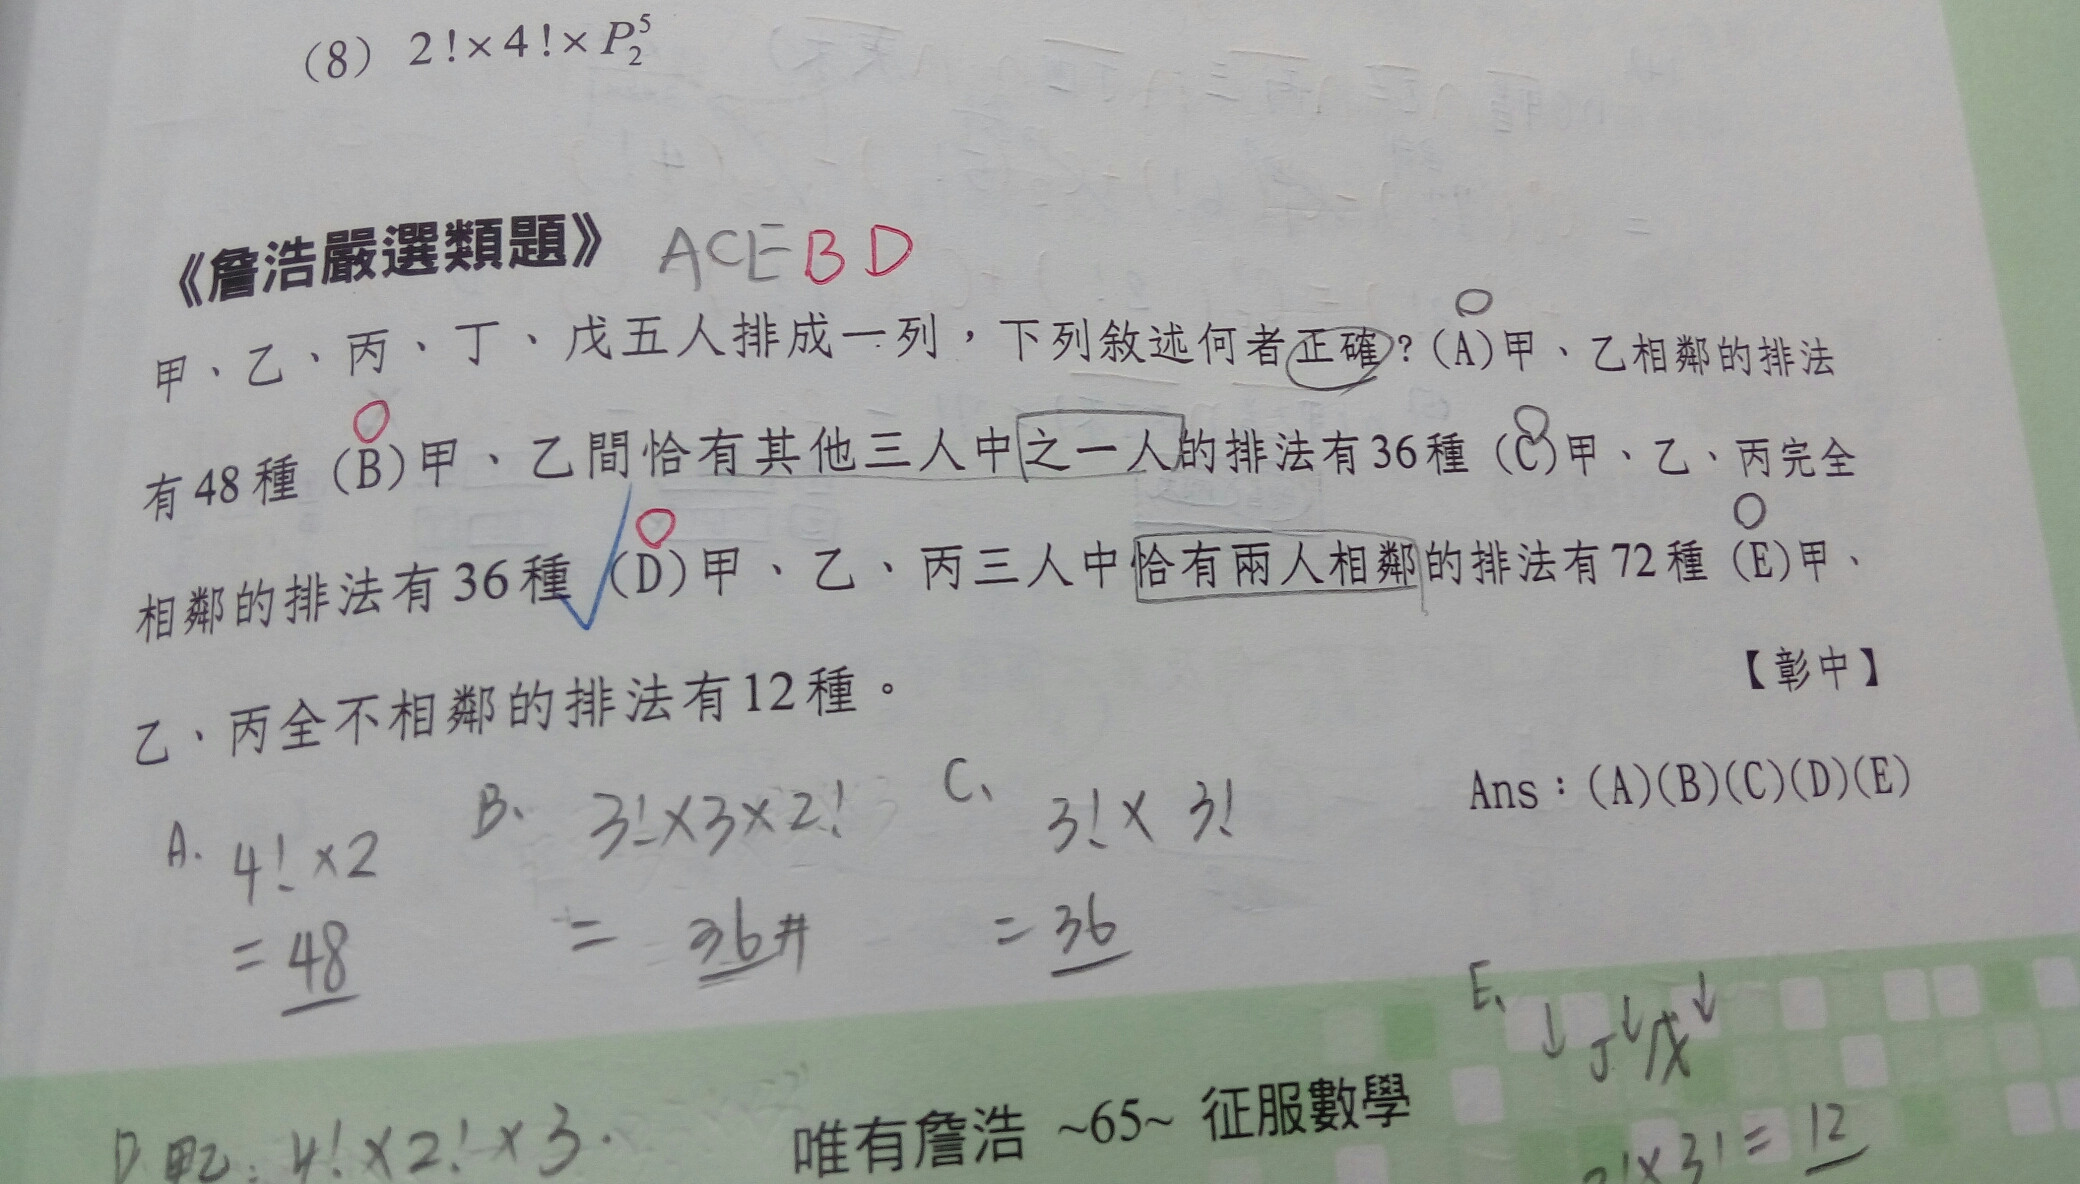 (8) 2!×4!×P⁵₂
《詹浩嚴選類題》 ACE BD
甲、乙、丙、丁、戊五人排成一列，下列敘述何者正確？(A)甲、乙相鄰的排法
有48種 (B)甲、乙間恰有其他三人中之一人的排法有36種 (C)甲、乙、丙完全
相鄰的排法有36種 (D)甲、乙、丙三人中恰有兩人相鄰的排法有72種 (E)甲、
乙、丙全不相鄰的排法有12種。
【彰中】
Ans：(A)(B)(C)(D)(E)
A. 4!×2
=48
B、 3!×3×2!
= 36#
C、 3!×3!
=36
E、 ↓丁↓戊↓
2!×3!=12
D 甲乙: 4!×2!×3.
唯有詹浩 ~65~ 征服數學